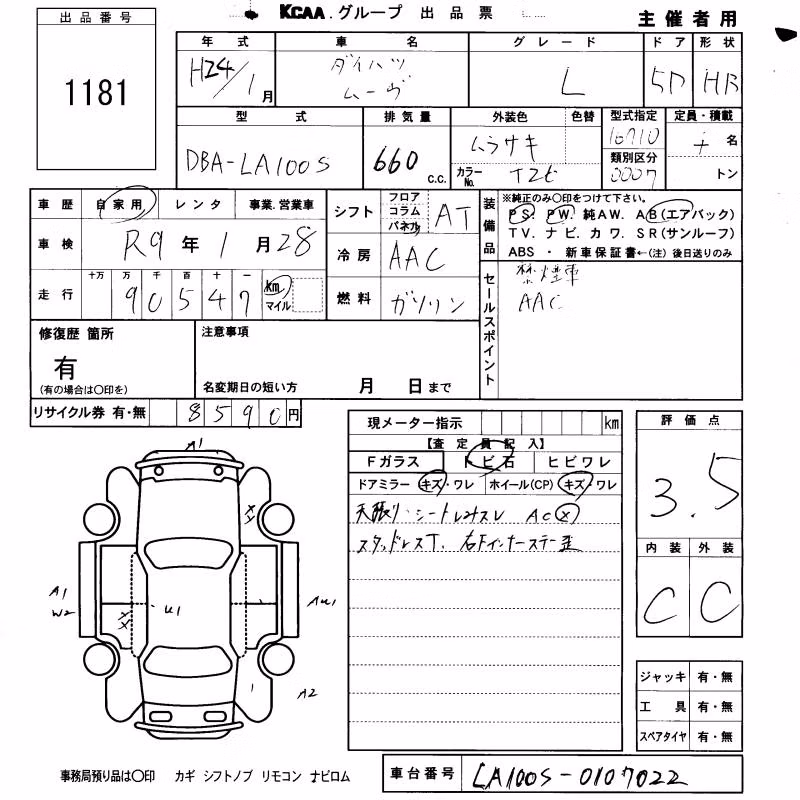 KCAA.グループ 出品票
主催者用
出品番号
1181
年式 車名 グレード ドア 形状
H24/1月 ダイハツ ムーヴ L 5D HB
型式 排気量 外装色 色替 型式指定 定員・積載
DBA-LA100S 660 c.c. ムラサキ 16710 名
カラーNo. T2E 類別区分 0007 トン
車歴 自家用 レンタ 事業.営業車
車検 R9年1月28
走行 十万 万 千 百 十 一
90547 km マイル
シフト フロア コラム パネル AT
冷房 AAC
燃料 ガソリン
装備品 ※純正のみ○印をつけて下さい。
PS. PW. 純AW. AB(エアバック)
TV. ナビ. カワ. SR(サンルーフ)
ABS ・ 新車保証書←(注) 後日送りのみ
セールスポイント
禁煙車
AAC
修復歴 箇所
有
(有の場合は○印を)
注意事項
名変期日の短い方 月 日まで
リサイクル券 有・無 8590円
現メーター指示 km
【査定員記入】
Fガラス トビ石 ヒビワレ
ドアミラー キズ・ワレ ホイール(CP) キズ・ワレ
天張り・シートレ AC X
スタッドレスT. 右Fインナーステー歪
評価点
3.5
内装 外装
C C
A1
A1
W2
U1
AU1
A2
ジャッキ 有・無
工具 有・無
スペアタイヤ 有・無
事務局預り品は○印 カギ シフトノブ リモコン ナビロム
車台番号 LA100S-0107022